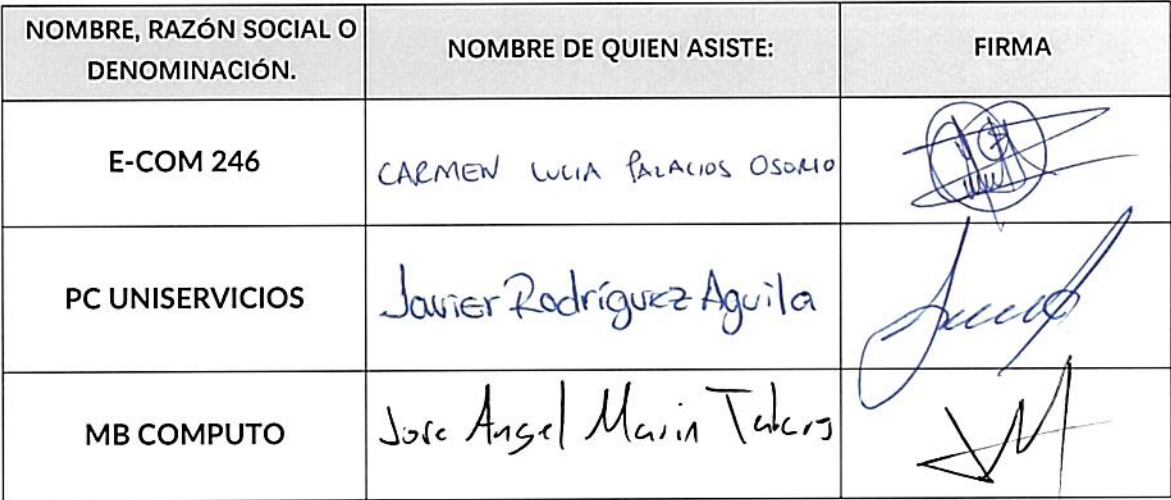 NOMBRE, RAZÓN SOCIAL O
DENOMINACIÓN.
NOMBRE DE QUIEN ASISTE:
FIRMA
E-COM 246
CARMEN LUCIA PALACIOS OSORIO
PC UNISERVICIOS
Javier Rodríguez Aguila
MB COMPUTO
Jose Angel Marin